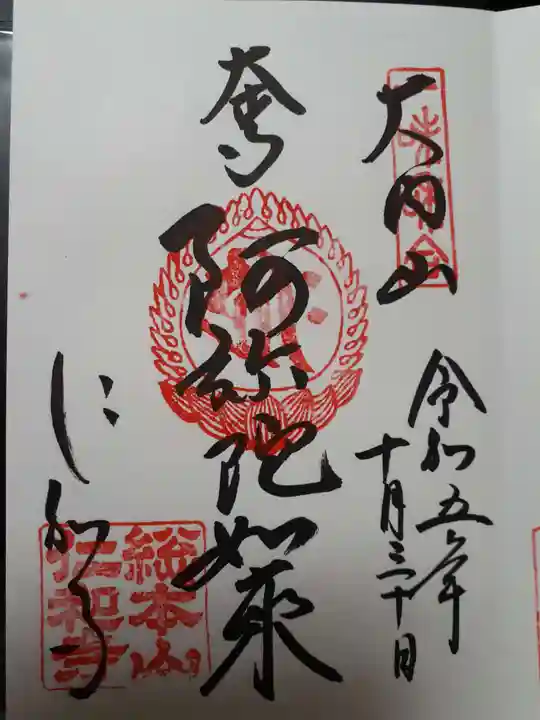 大内山
令和五年
十月三十日
奉
阿弥陀如来
仁和寺
総本山
仁和寺